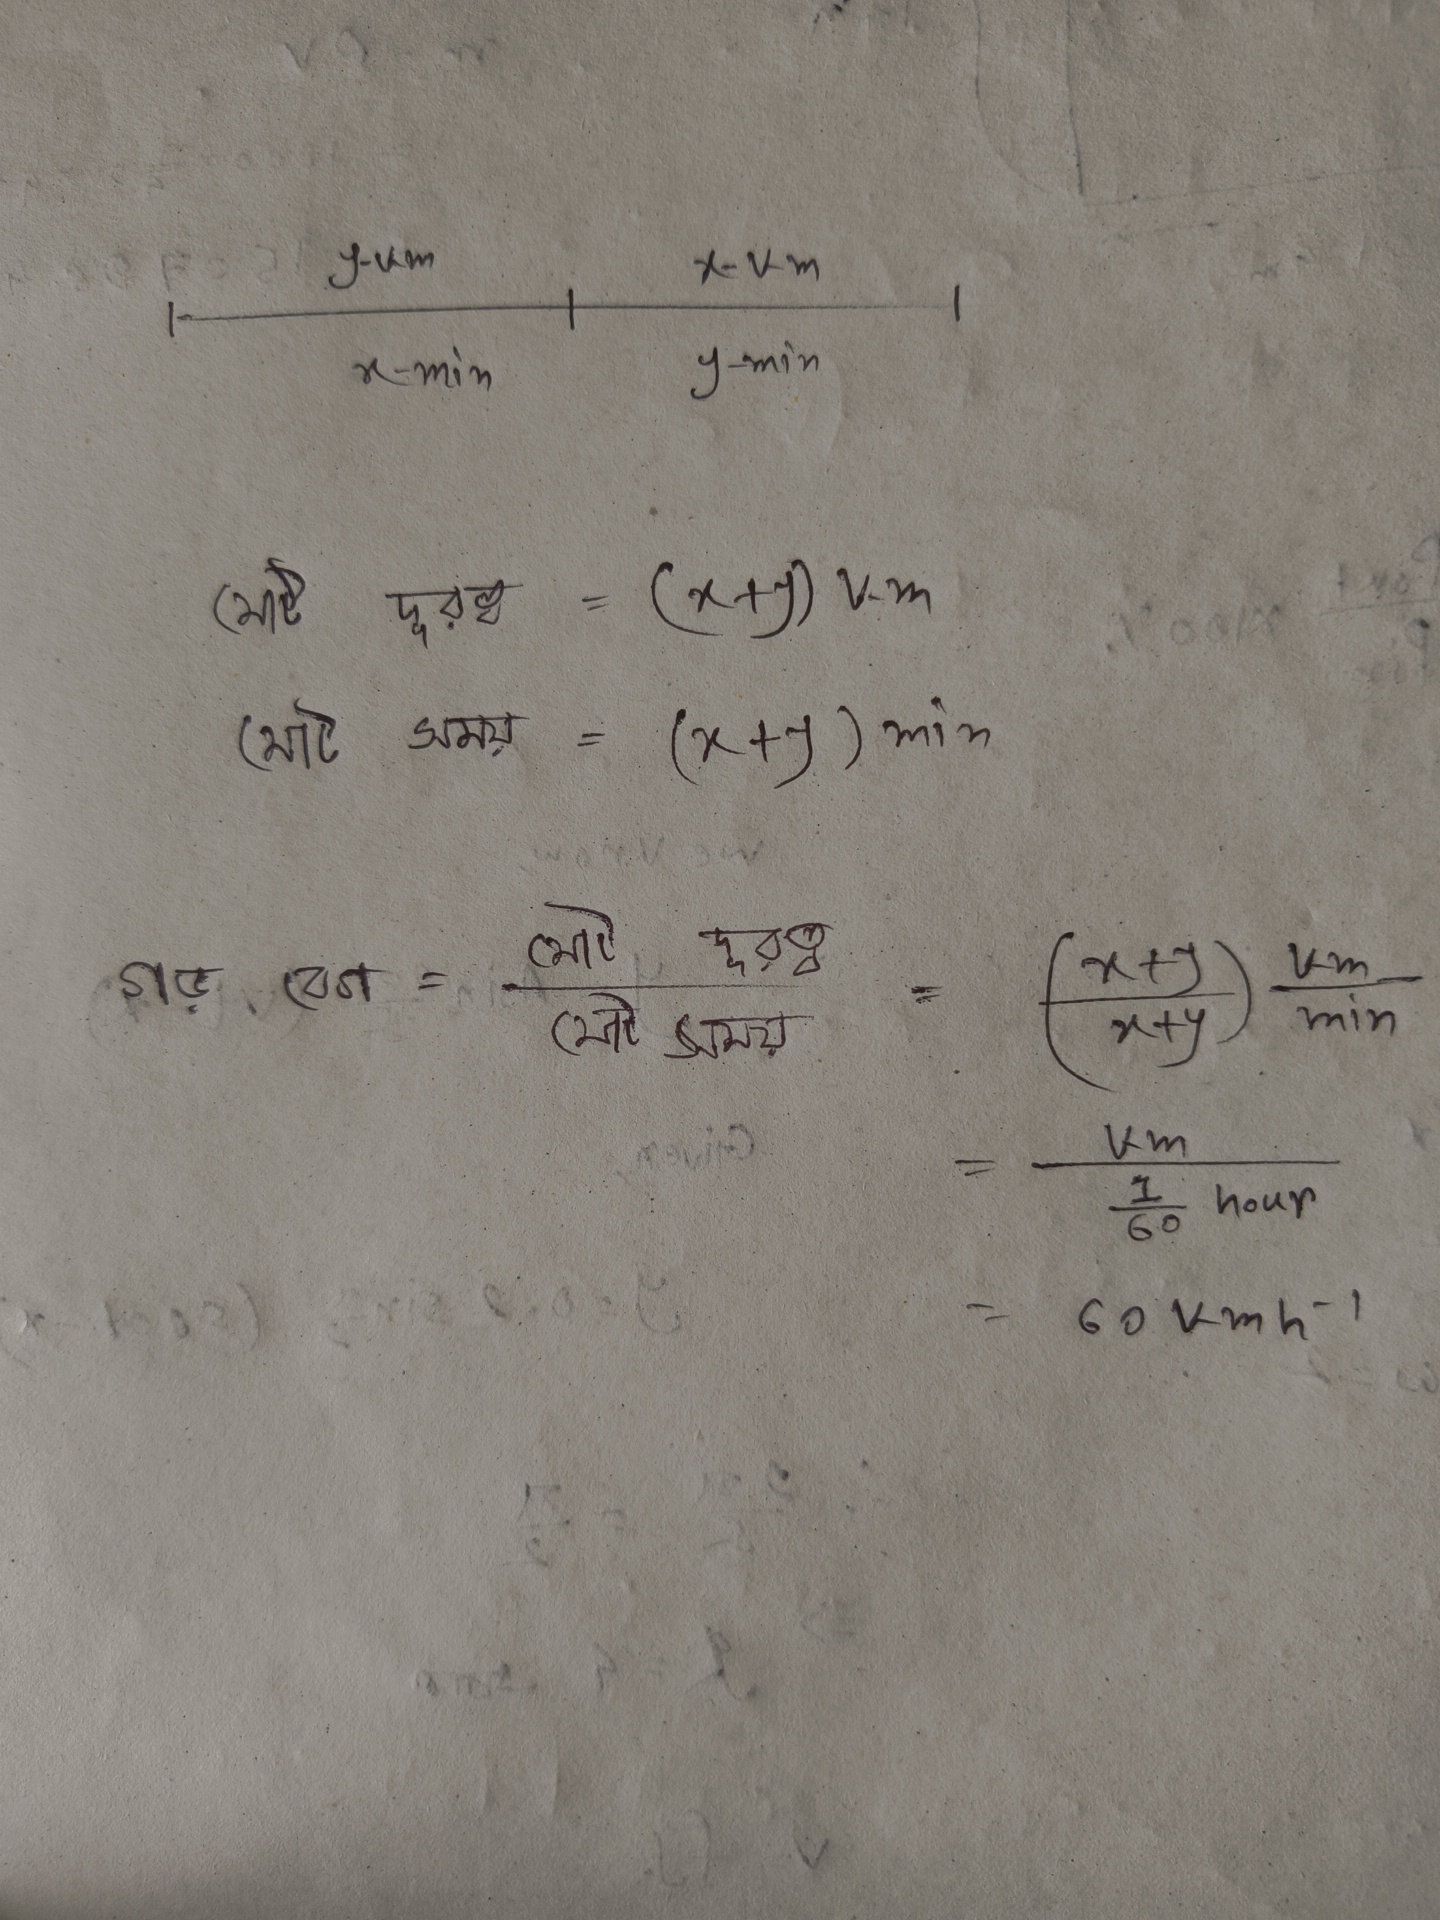 y-km x-km
x-min y-min
মোট দূরত্ব = (x+y) km
মোট সময় = (x+y) min
গড় বেগ = মোট দূরত্ব / মোট সময় = (x+y / x+y) km / min
= km / 1/60 hour
= 60 kmh-1